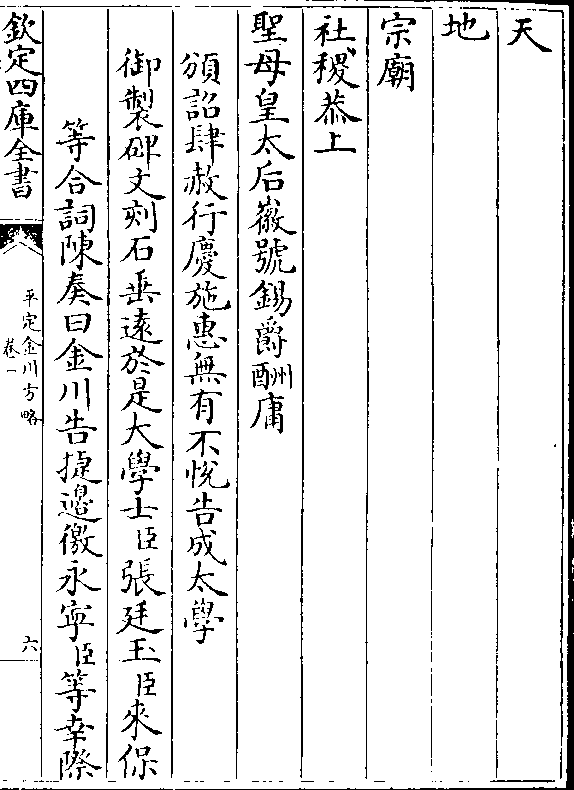 天
地
宗廟
社稷恭上
聖母皇太后徽號錫爵酬庸
頒詔肆赦行慶施惠無有不悅告成太學
御製碑文刻石垂遠於是大學士臣張廷玉臣來保
等合詞陳奏曰金川告捷邊徼永寧臣等幸際
欽定四庫全書
平定金川方略
卷一
六